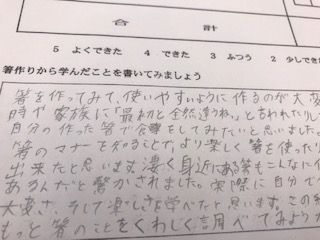 合計
5 よくできた 4 できた 3 ふつう 2 少しできた
箸作りから学んだことを書いてみましょう
箸を作ってみて、使いやすいように作るのが大変
時や家族に「最初と全然違うね。」と言われたりし
自分の作った箸で食事をしてみたいと思いました。
箸のマナーを知ることで、より楽しく箸を使ったり
出来たと思います。凄く身近にある箸もこんなに
あるんだと驚かされました。実際に自分で
大変さ、そして楽しさを学べたと思います。この
もっと箸のことをくわしく調べてみよう